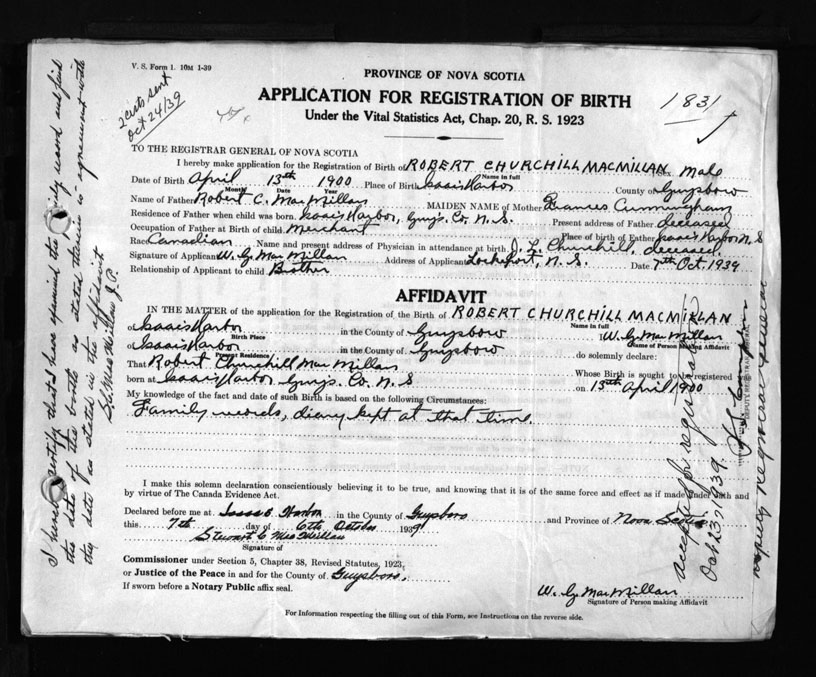 V. S. Form 1. 10M 1-39
2 certs sent
Oct 24/39
PROVINCE OF NOVA SCOTIA
APPLICATION FOR REGISTRATION OF BIRTH
Under the Vital Statistics Act, Chap. 20, R. S. 1923
1831
TO THE REGISTRAR GENERAL OF NOVA SCOTIA
I hereby make application for the Registration of Birth of ROBERT CHURCHILL MACMILLAN Sex Male
Name in full
Date of Birth April 13th 1900 Place of Birth Isaacs Harbor County of Guysboro
Month Date Year
Name of Father Robert C. MacMillan MAIDEN NAME of Mother Frances Cunningham
Residence of Father when child was born. Isaacs Harbor, Guys. Co. N. S. Present address of Father deceased
Occupation of Father at Birth of child Merchant Place of birth of Father Isaacs Harbor N. S
Race Canadian Name and present address of Physician in attendance at birth. Churchill, deceased
Signature of Applicant W. G. MacMillan Address of Applicant Lockeport, N. S. Date 7th Oct. 1939
Relationship of Applicant to child Brother
AFFIDAVIT
IN THE MATTER of the application for the Registration of the Birth of ROBERT CHURCHILL MACMILLAN
Name in full
of Isaacs Harbor in the County of Guysboro I W. G. MacMillan
Birth Place Name of Person Making Affidavit
of Isaacs Harbor in the County of Guysboro do solemnly declare:
Present Residence
That Robert Churchill MacMillan Whose Birth is sought to be registered was
born at Isaacs Harbor Guys. Co. N. S on 13th April 1900
My knowledge of the fact and date of such Birth is based on the following Circumstances:
Family records, diary kept at that time.
I make this solemn declaration conscientiously believing it to be true, and knowing that it is of the same force and effect as if made under oath and
by virtue of The Canada Evidence Act.
Declared before me at Isaacs Harbor in the County of Guysboro and Province of Nova Scotia
this 7th day of October 1939
Stewart C MacMillan
Signature of
Commissioner under Section 5, Chapter 38, Revised Statutes, 1923,
or Justice of the Peace in and for the County of Guysboro.
If sworn before a Notary Public affix seal.
W. G. MacMillan
Signature of Person making Affidavit
For Information respecting the filling out of this Form, see Instructions on the reverse side.
I hereby certify that I have examined the diary record and find
the date of this birth as stated therein in agreement with
the date as stated in the affidavit
S. C. MacMillan J. P.
Accepted for registration
Oct 23/1939.
DEPUTY REGISTRAR GENERAL
Deputy Registrar General